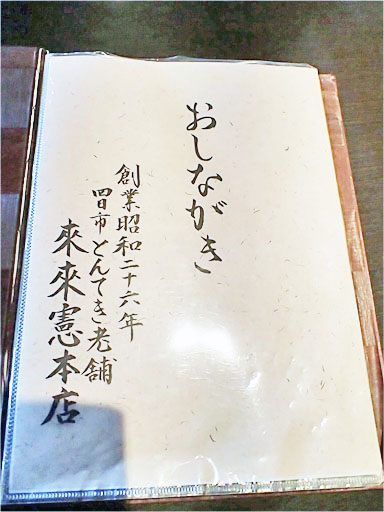 おしながき
創業昭和二十六年
四日市とんてき老舗
來來憲本店